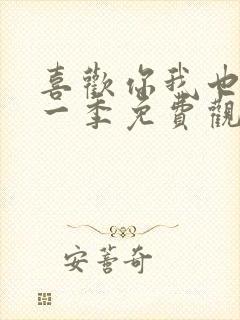 喜歡你我也
一季免費觀
安薈奇